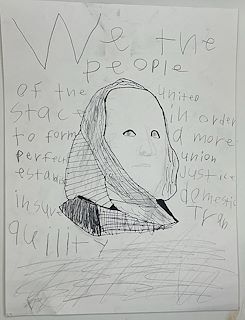 We the
people
of the united
stace in order
to form a more
perfect union
estabish justice
insure domestic
Tran
quility